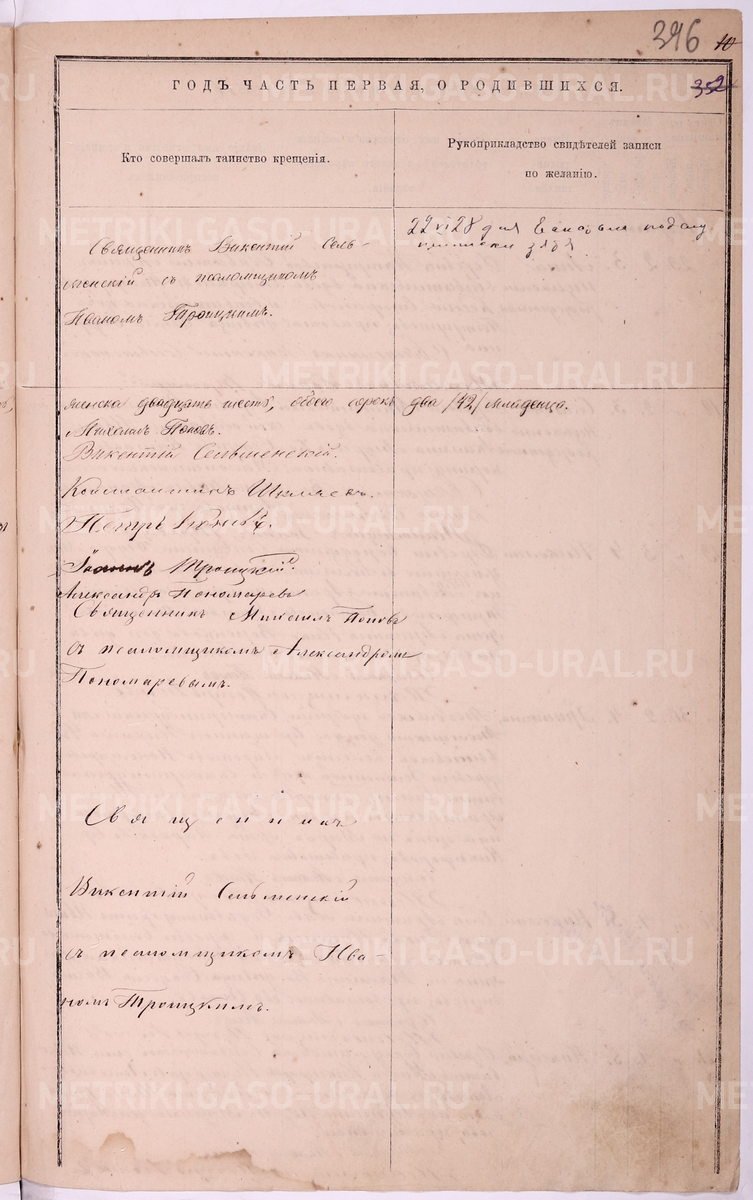 396
10
352
ГОДЪ ЧАСТЬ ПЕРВАЯ, О РОДИВШИХСЯ.
Кто совершалъ таинство крещенія.
Рукоприкладство свидѣтелей записи
по желанію.
Священникъ Викентій Сель-
менскій съ псаломщикомъ
Иваномъ Троицкимъ.
22 VI 28
женска двадцать шесть, обоего сорокъ два /42/ младенца.
Михаилъ Поповъ.
Викентій Сельменскій.
Константинъ Шиляевъ.
Петръ
Іоаннъ Троицкій.
Александръ Пономаревъ
Священникъ Михаилъ Поповъ
съ псаломщикомъ Александромъ
Пономаревымъ.
Священникъ
Викентій Сельменскій
съ псаломщикомъ Ива-
номъ Троицкимъ.
METRIKI.GASO-URAL.RU